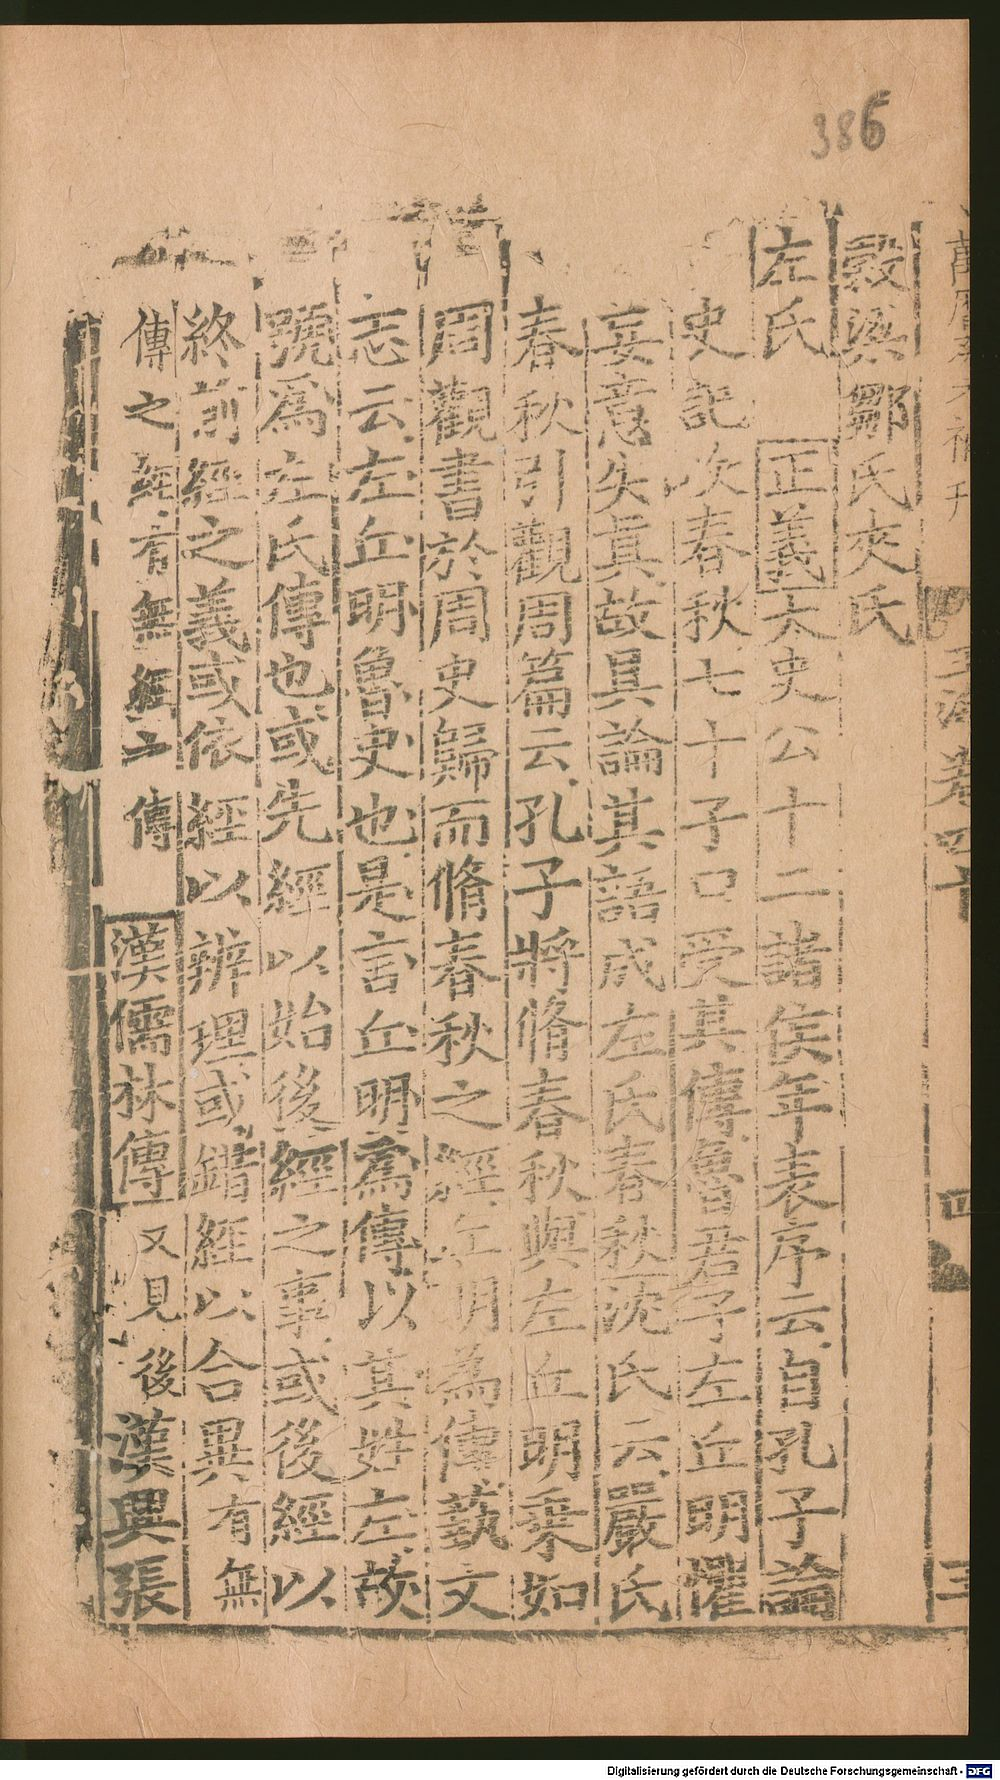 386
萬曆
玉海卷四十
四
三
穀梁鄒氏夾氏
左氏 正義太史公十二諸侯年表序云自孔子論
史記次春秋七十子口受其傳魯君子左丘明懼
妄意失真故具論其語成左氏春秋沈氏云嚴氏
春秋引觀周篇云孔子將脩春秋與左丘明乗如
周觀書於周史歸而脩春秋之經丘明為傳蓺文
志云左丘明魯史也是言丘明爲傳以其姓左故
號爲左氏傳也或先經以始後經之事或後經以
終前經之義或依經以辨理或錯經以合異有無
傳之經有無經之傳 漢儒林傳又見後漢興張
Digitalisierung gefördert durch die Deutsche Forschungsgemeinschaft - DFG